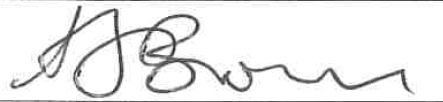 AJ Brown